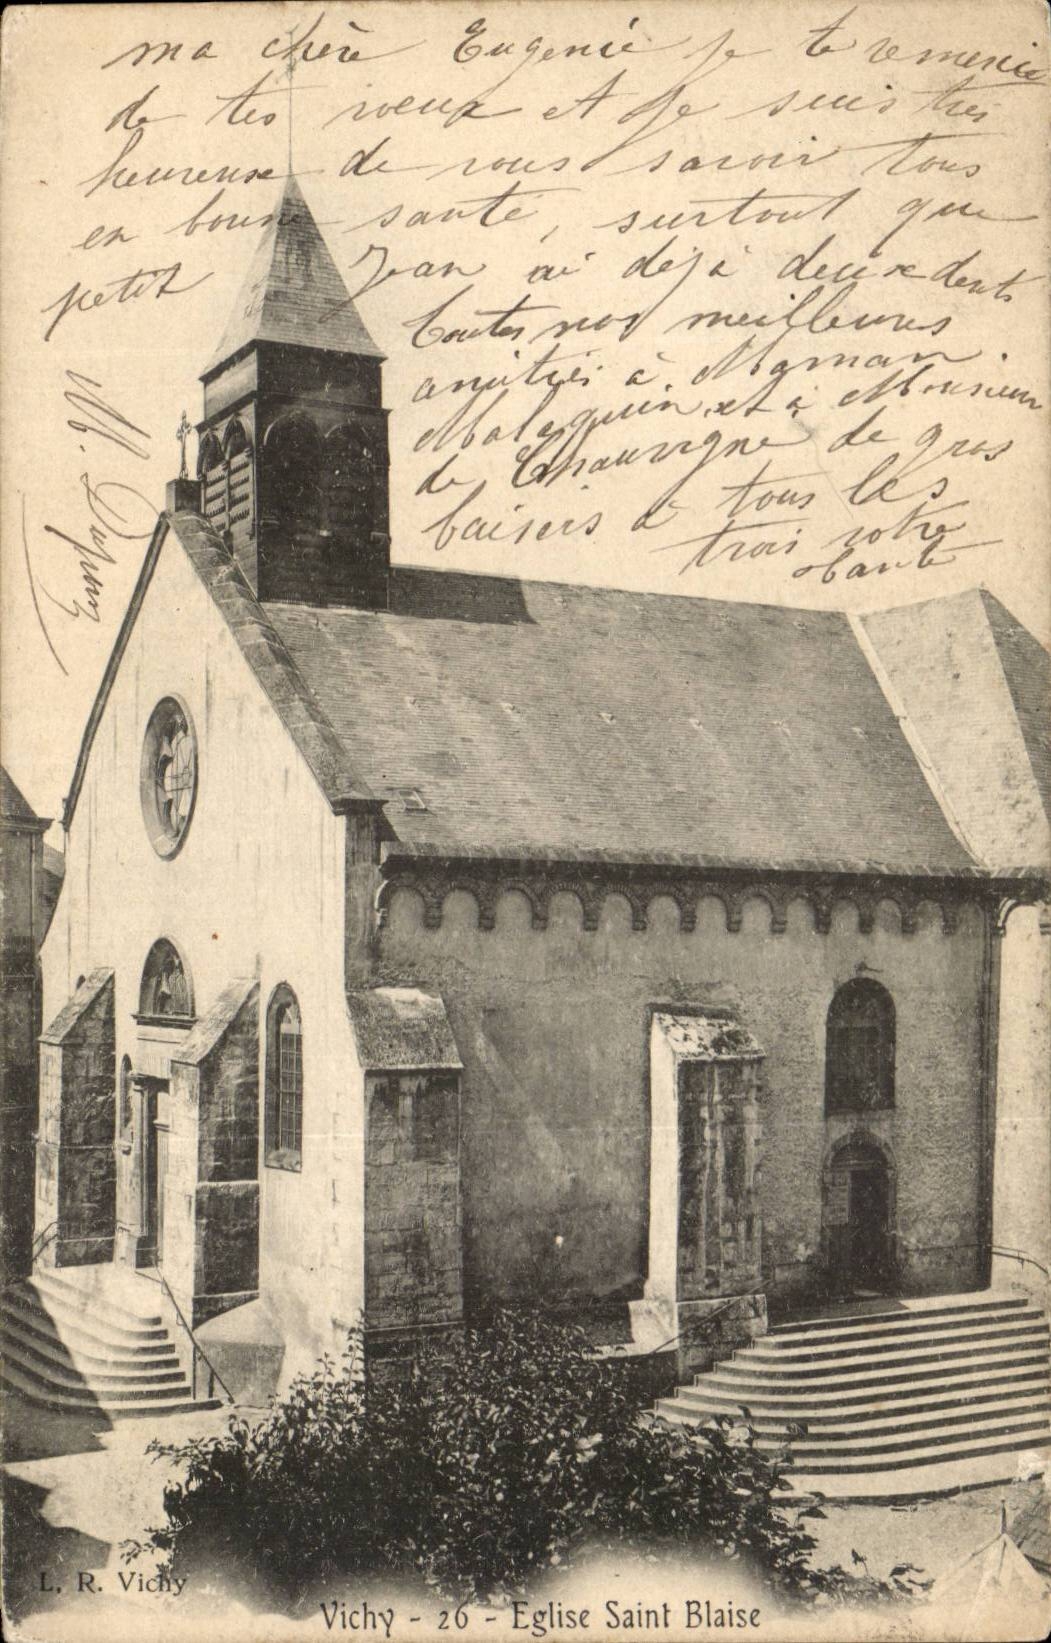 ma chère Eugenie je te remercie
de tes voeux et je suis très
heureuse de vous savoir tous
en bonne santé, surtout que
petit Jean ai déjà deux dents
toutes nos meilleures
amitiés à Maman
Malaquin, et à Monsieur
de Chauvigne de gros
baisers à tous les
trois votre
tante
M. Dupuy
L. R. Vichy
Vichy - 26 - Eglise Saint Blaise